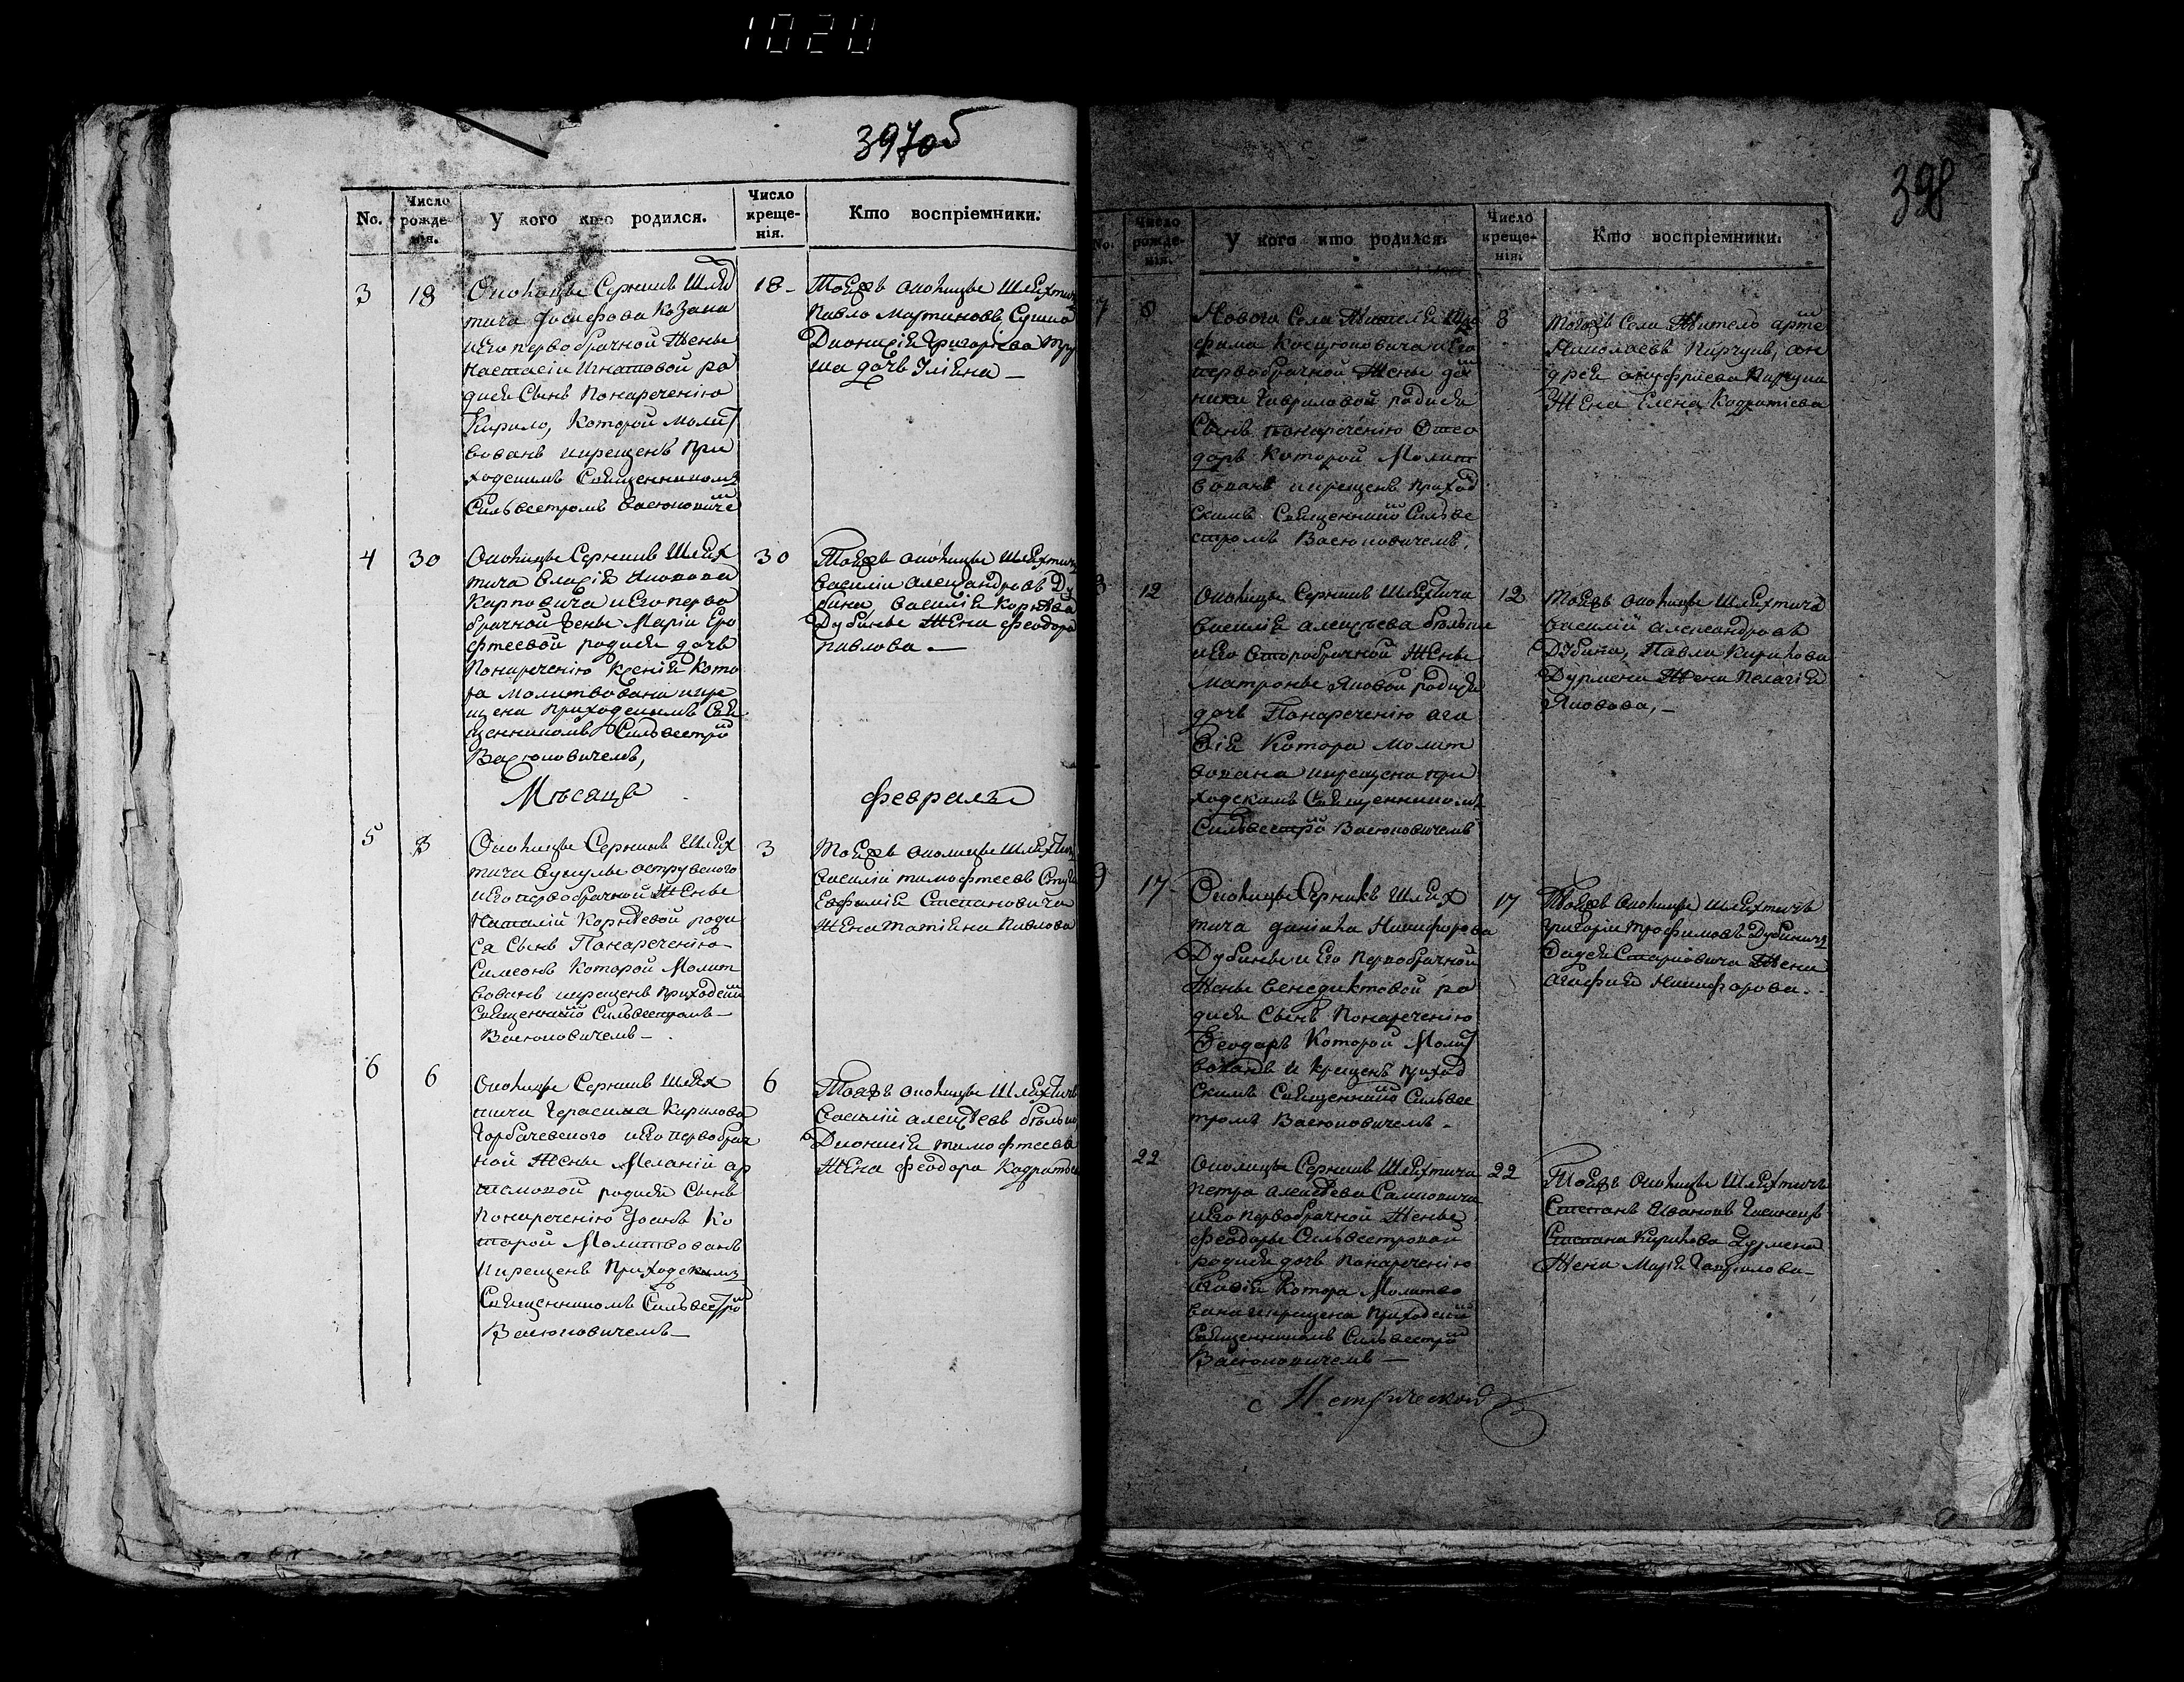 1020
397об
No.
Число рожде-
нія.
У кого кто родился.
Число креще-
нія.
Кто воспріемники.
3
18
Околицы Серникъ Шлях
тича Іосифова Козака
и Его первобрачной Жены
Настасіи Игнатовой ро
дися Сынъ Понареченію
Кирило, Которой Молит
вованъ икрещенъ При
ходскимъ Священникомъ
Сильвестромъ Васюкович
18
Тоеяжъ околицы Шляхтич
Павло Мартиновъ
Дионисія Григоріева
дочь
4
30
Околицы Серникъ Шлях
тича
Карповича и Его перво
брачной Жены Маріи Еро
фтеевой родися дочь
Понареченію Ксенія Кото
ра молитвована икре
щена Приходскимъ Свя
щенникомъ Сильвестро
Васюковичемъ,
30
Тоеяжъ околицы Шляхтич
Василій Александровъ Ду
бина, Василія Корнѣева
Дубины Жена Феодора
Павлова
Мѣсяца
февраля
5
3
Околицы Серникъ Шлях
тича острувского
и Его первобрачной Жены
Наталій Корнѣевой роди
ся Сынъ Понареченію
Симеонъ Которой Молит
вованъ икрещенъ Приходски
Священнико Сильвестромъ
Васюковичемъ
3
Тоеяжъ околицы Шляхтич
Василій тимофтеевъ
Евфимія Степановича
Жена татіяна Павлова
6
6
Околицы Серникъ Шлях
тича Герасима Кирилова
Горбачевского и Его первобрач
ной Жены Меланій ар
темовой родися Сынъ
Понареченію Іоанъ Ко
торой Молитвованъ
икрещенъ Приходскимъ
Священникомъ Сильвестро
Васюковичемъ
6
Тоеяжъ околицы Шляхтичъ
Василій алексѣевъ
Дионисія тимофтеева
Жена феодора
398
No.
Число рожде-
нія.
У кого кто родился.
Число креще-
нія.
Кто воспріемники.
7
8
Нового Села Жителя Тро
фима Костюковича и Его
первобрачной Жены дом
ники Гавриловой родися
Сынъ понареченію Фтео
доръ Которой Молит
вованъ икрещенъ приход
скимъ Священнико Сильве
стромъ Васюковичемъ.
8
Тогожъ Села Житель арте
Николаевъ Кирчукъ, ан
дрея онуфріева
Жена Елена Кодратіева
8
12
Околицы Серникъ Шляхтича
Василія алексѣева
и Его второбрачной Жены
Матроны Яковой родися
дочь Понареченію ага
фія Котора Молит
вована икрещена при
ходскимъ Священникомъ
Сильвестро Васюковичемъ
12
Тоеяжъ околицы Шляхтичъ
Василій александровъ
Дубина, Павла Кирикова
Дурмена Жена Пелагія
Якова,
9
17
Околицы Серникъ Шлях
тича данила Никифорова
Дубины и Его первобрачной
Жены Венедиктовой ро
дися Сынъ Понареченію
Феодоръ Которой Молит
вованъ и крещенъ приход
скимъ Священнико Сильвес
тромъ Васюковичемъ
17
Тоеяжъ околицы Шляхтичъ
Григорій трофимовъ
Фадея Жена
агафія Никифорова.
22
Околицы Серникъ Шляхтича
Петра алексѣева
и Его первобрачной Жены
Феодоры Сильвестровой
родися дочь понареченію
Котора Молитво
вана икрещена приходски
Священникомъ Сильвестро
Васюковичемъ
22
Тоеяжъ околицы Шляхтичъ
Степанъ Ивановъ
Степана Кирикова Дурмена
Жена Марія Гаврилова
с Метрической